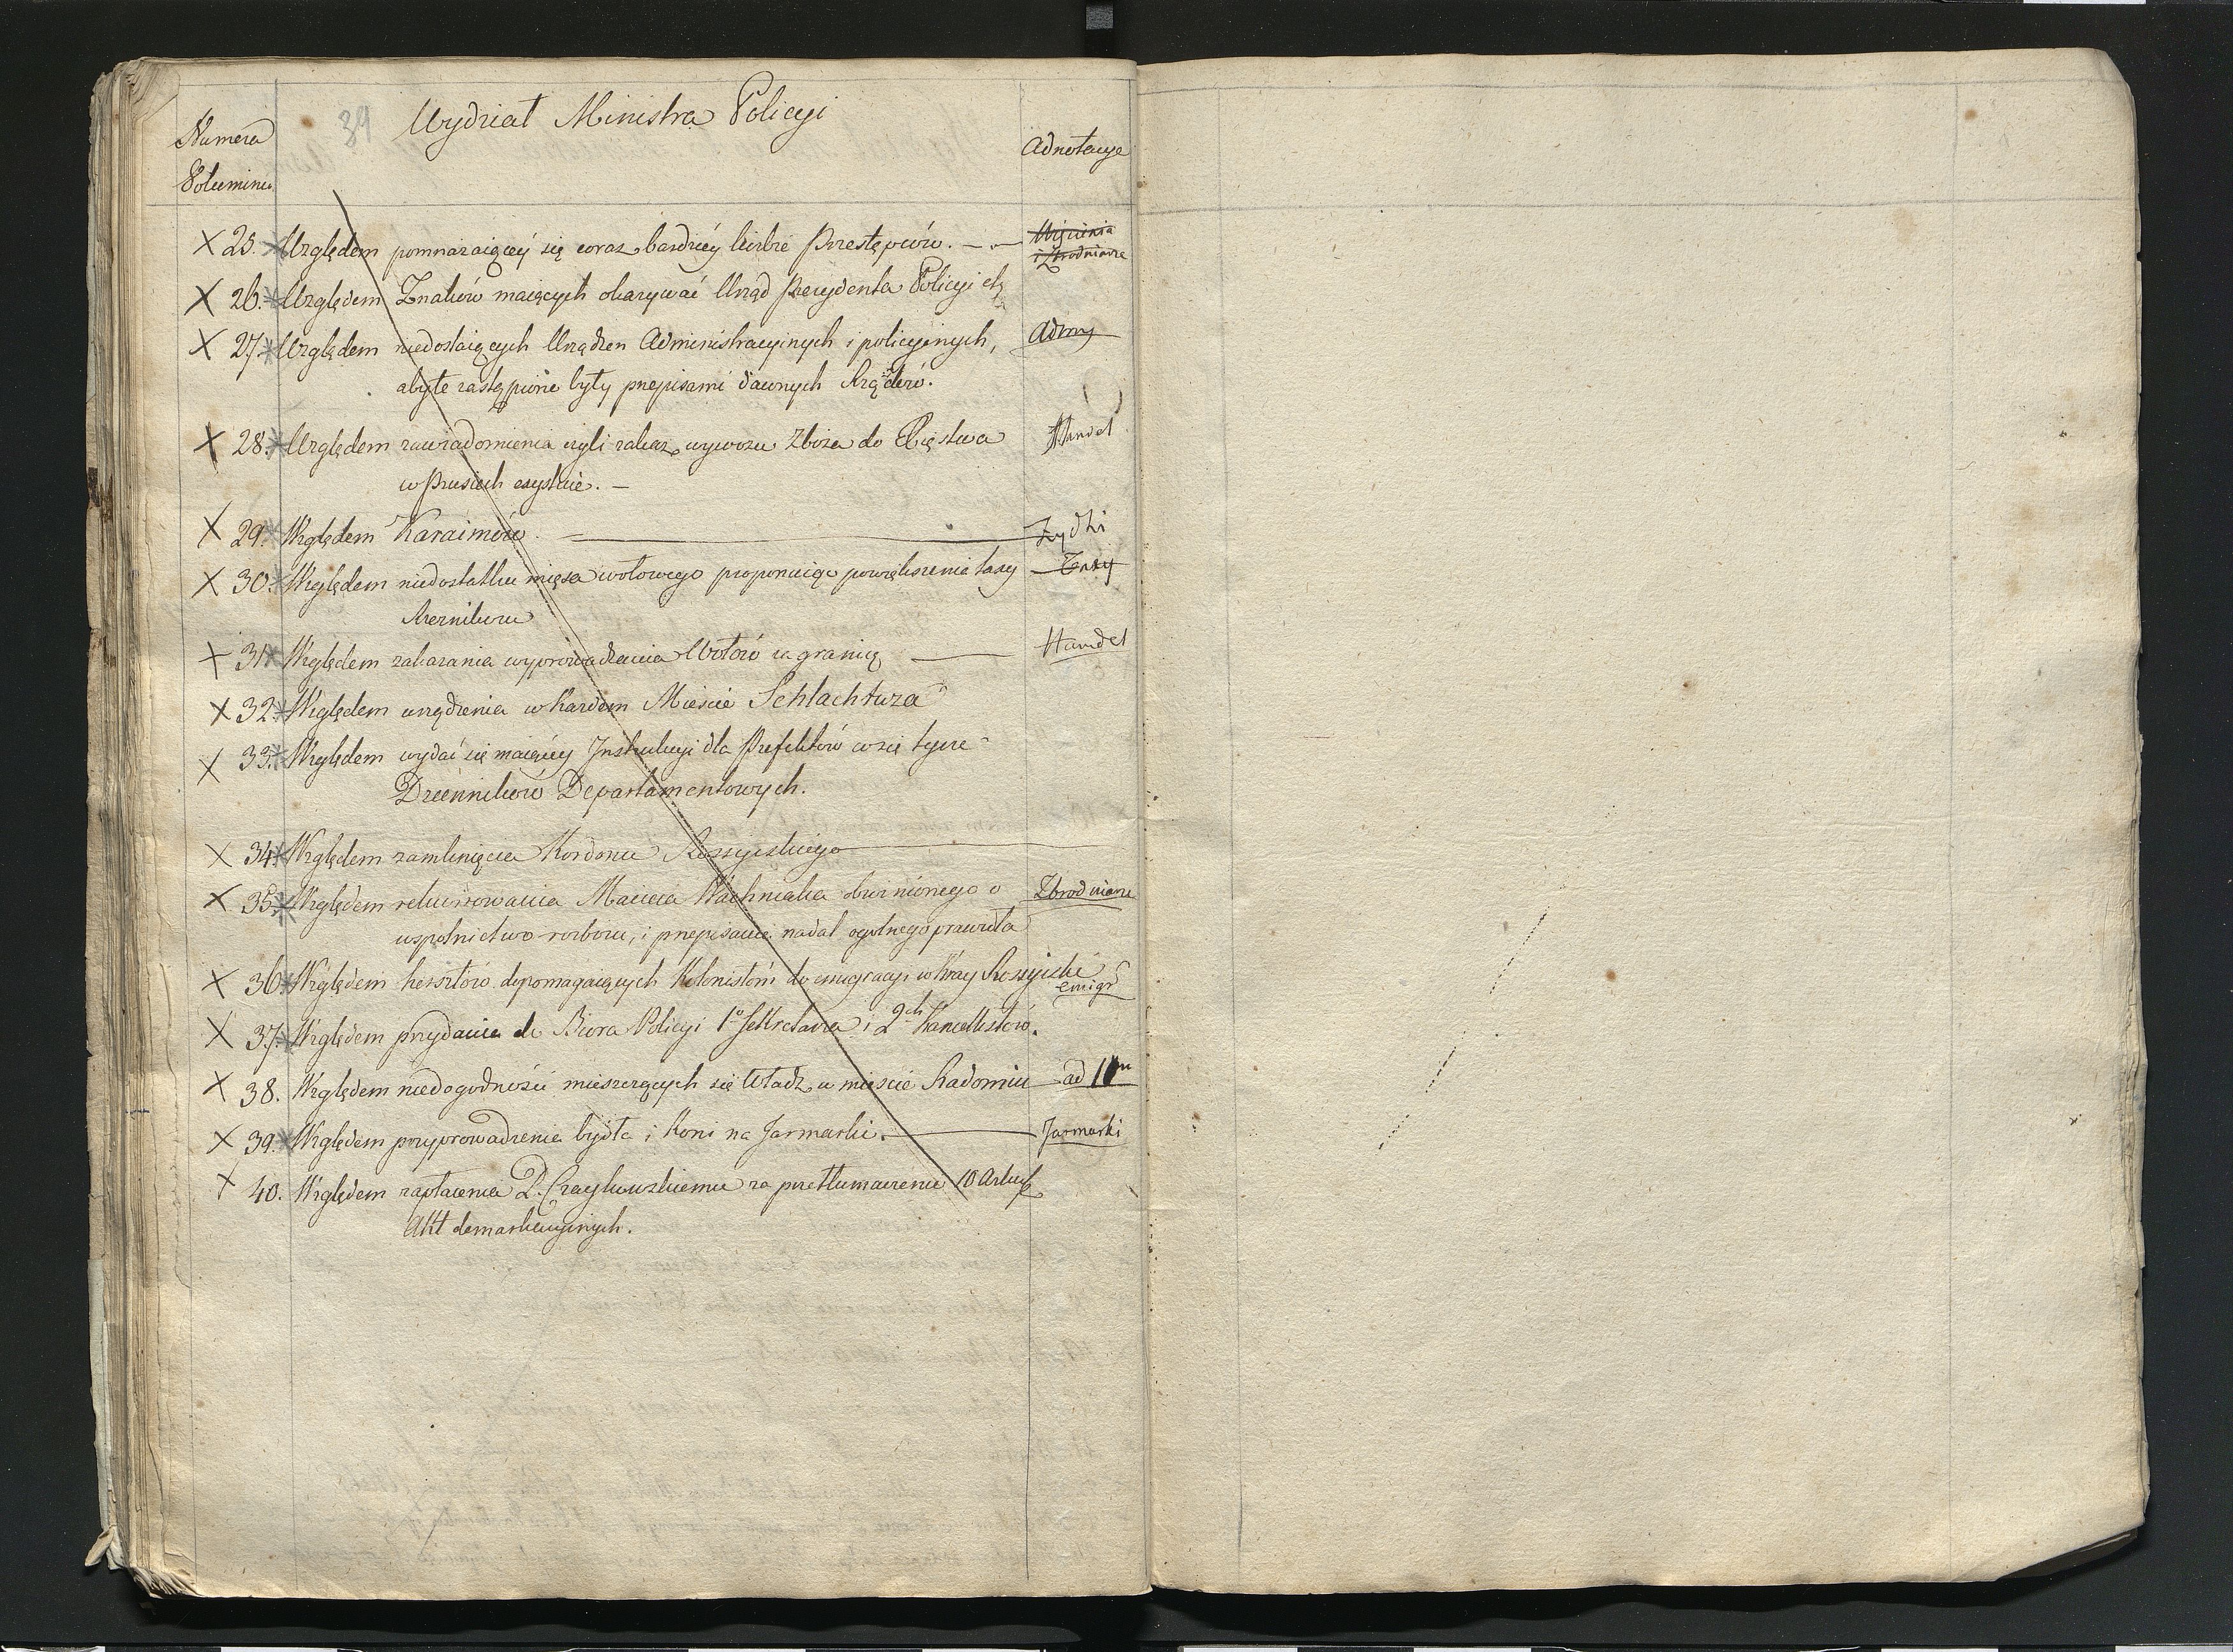 39
Wydział Ministra Policyi
Numera
Volumina
Adnotacye
25. Względem pomnażaiącey się coraz bardziey liczbie Przestępców. Więzienia
i Zbrodniarze
26. Względem Znaków maiących okazywać Urząd Prezydenta Policyi etc
27. Względem niedostaiących Urządzen Administracyinych i policyinych, Admy
aby te zastąpione były przepisami dawnych Rządców.
28. Względem zawiadomienia czyli zakaz wywozu Zboża do Xięstwa Handel
w Prusiech exystuie. —
29. Względem Karaimów. Zydzi
30. Względem niedostatku mięsa wołowego proponuiąc powiększenia taxy Taxy
Rzeznikom
31. Względem zakazania wyprowadzania Wołów za granicę Handel
32. Względem urządzenia w każdem Miescie Schlachtuza
33. Względem wydać się maiącey Instrukcyi dla Prefektów co się tycze
Dzienników Departamentowych.
34. Względem zamknięcia Kordonu Rossyiskiego
35. Względem rekwirowania Macieia Wachniaka obwinionego o Zbrodniarze
uspolnictwo rozboiu, i przepisanie nadal ogolnego prawidła
36. Względem hersztów dopomagaiących Kolonistom do emigracyi w Kray Rossyiski
emigr
37. Względem przydania do Biora Policyi 1o Sekretarza i 2ch Kancellistów.
38. Względem niedogodności mieszczących się Władz w mieście Radomiu ad
39. Względem przyprowadzenia bydła i Koni na Jarmarki. Jarmarki
40. Względem zapłacenia D. za przetłumaczenie 10 Arkusz
Akt demarkacyinych.